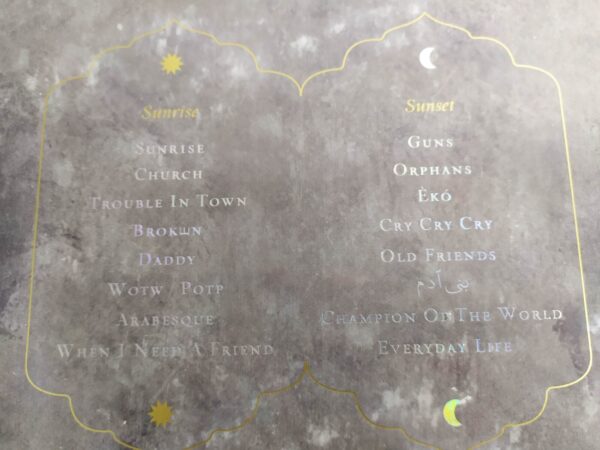 Sunrise
SUNRISE
CHURCH
TROUBLE IN TOWN
BROKEN
DADDY
WOTW / POTP
ARABESQUE
WHEN I NEED A FRIEND
Sunset
GUNS
ORPHANS
ÈKÓ
CRY CRY CRY
OLD FRIENDS
بنی آدم
CHAMPION OF THE WORLD
EVERYDAY LIFE